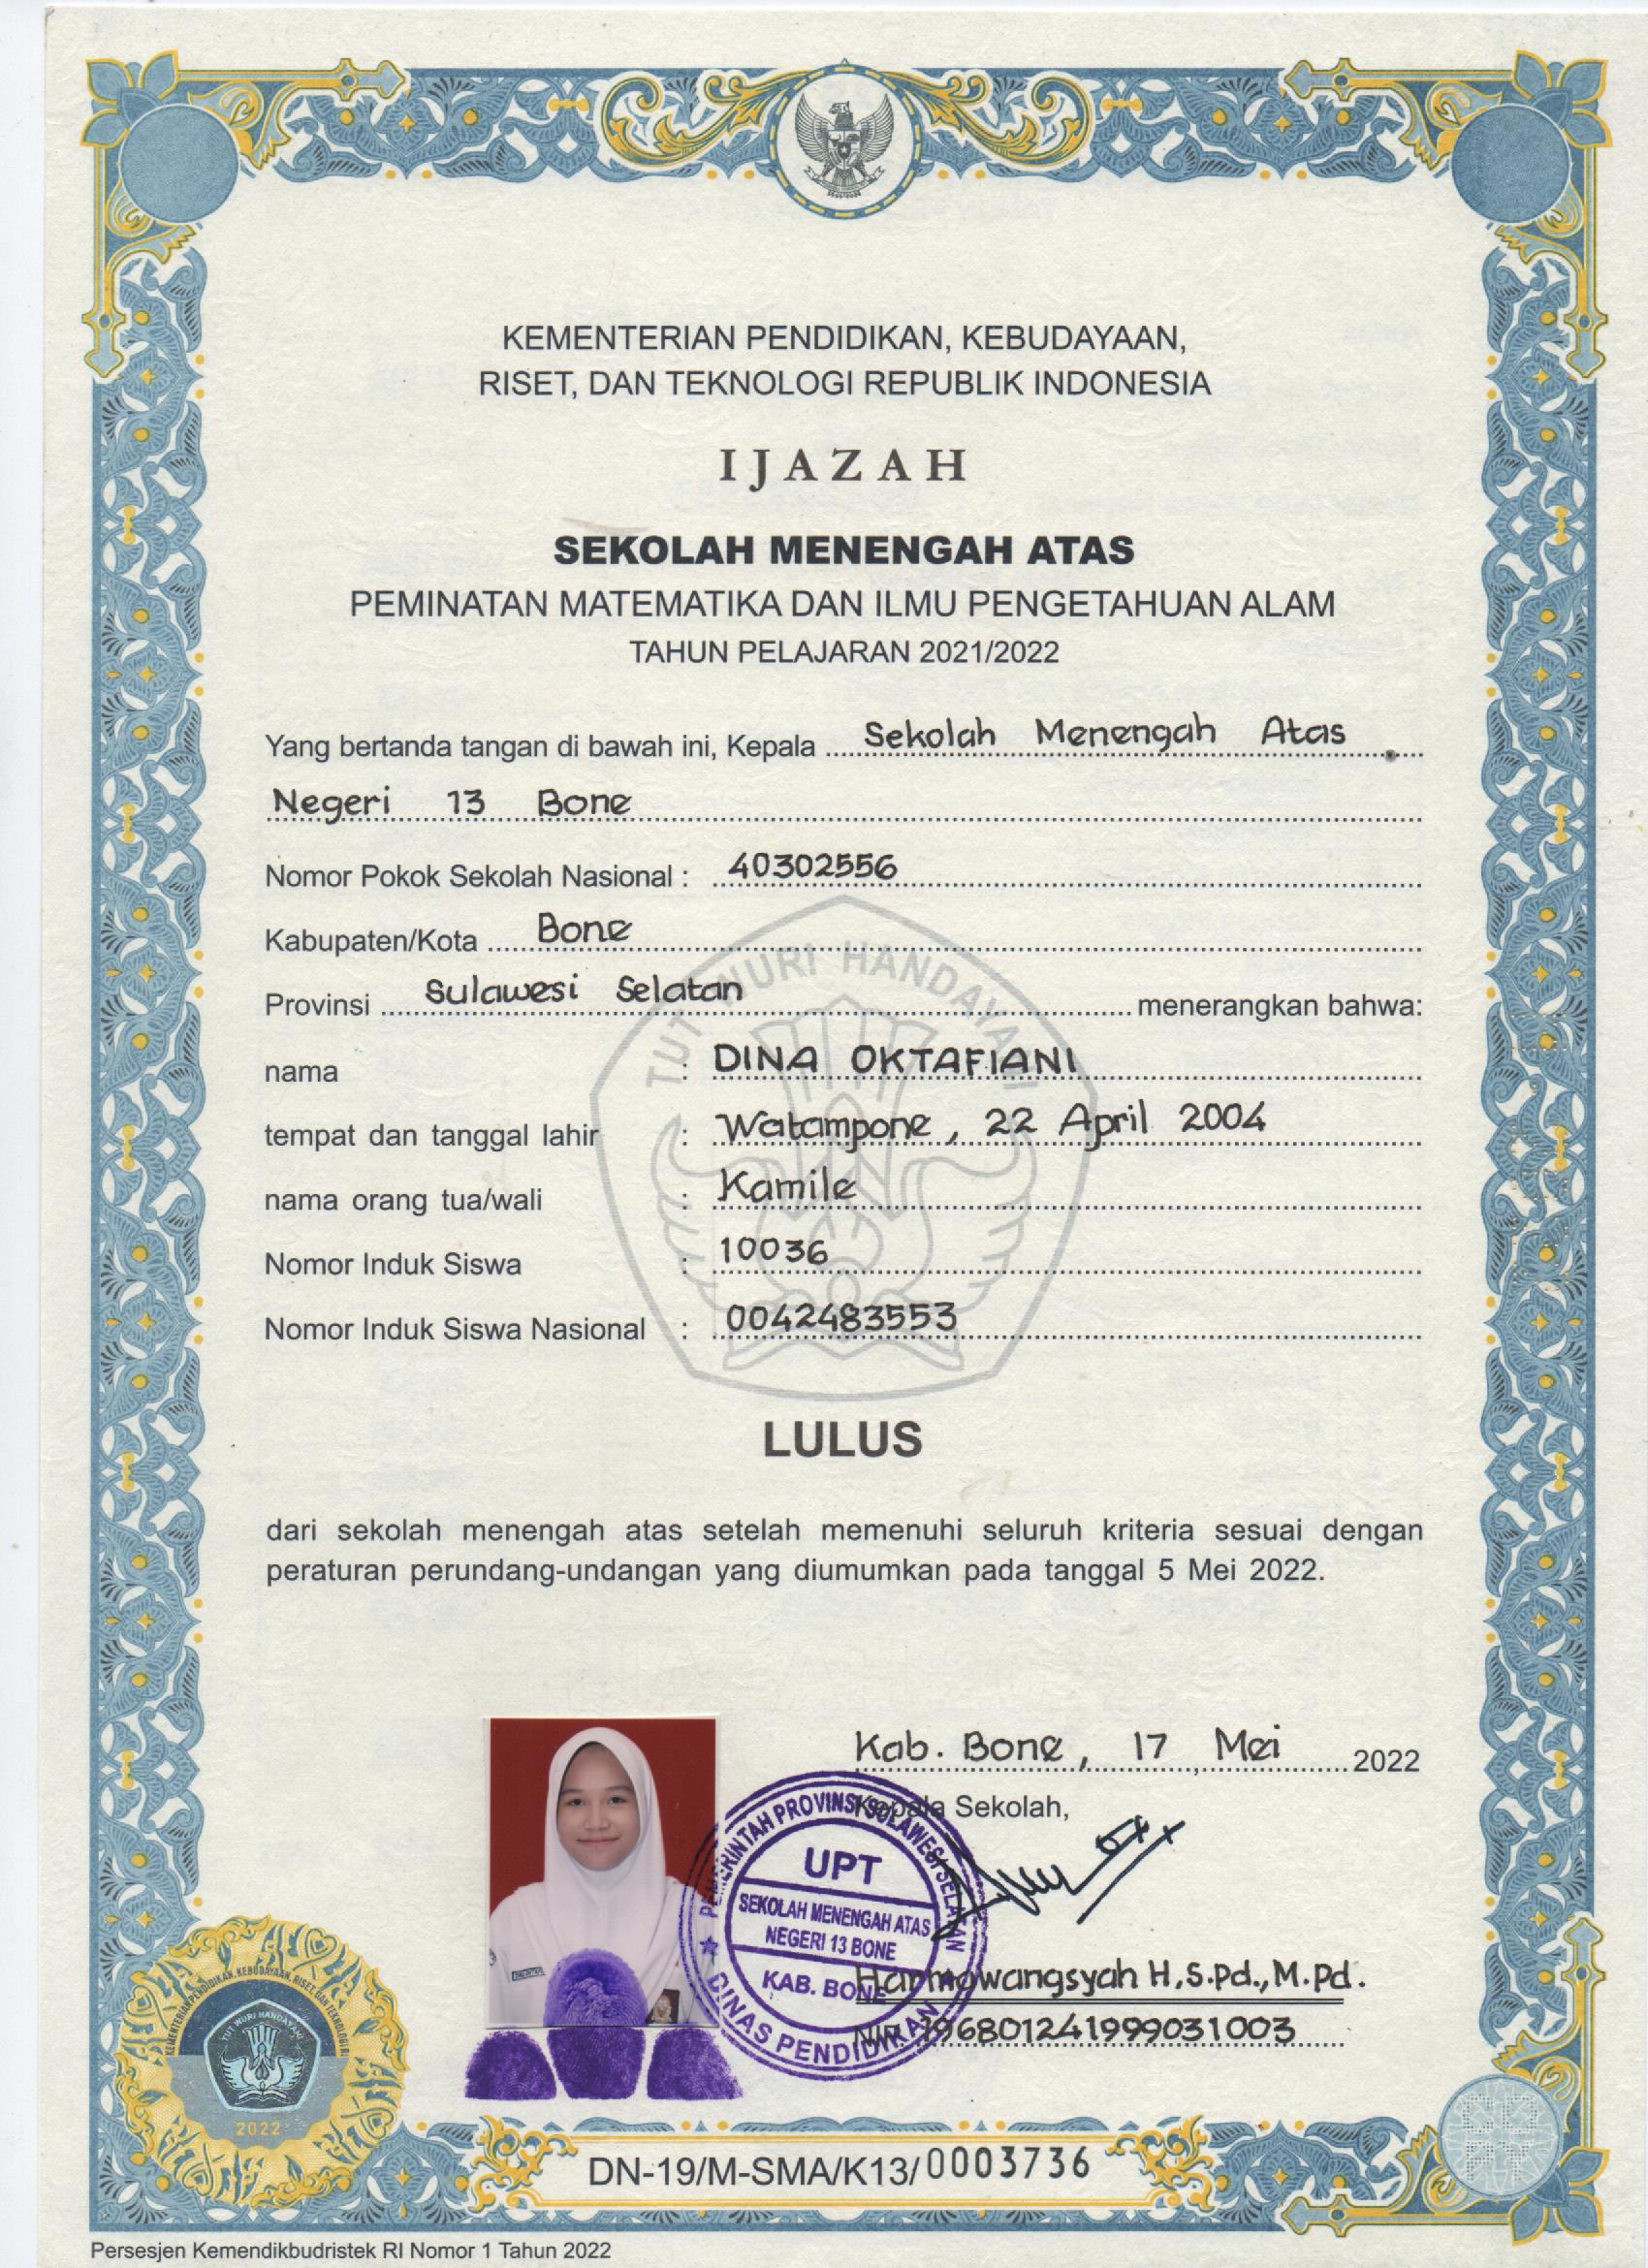 KEMENTERIAN PENDIDIKAN, KEBUDAYAAN,
RISET, DAN TEKNOLOGI REPUBLIK INDONESIA
IJAZAH
SEKOLAH MENENGAH ATAS
PEMINATAN MATEMATIKA DAN ILMU PENGETAHUAN ALAM
TAHUN PELAJARAN 2021/2022
Yang bertanda tangan di bawah ini, Kepala Sekolah Menengah Atas
Negeri 13 Bone
Nomor Pokok Sekolah Nasional : 40302556
Kabupaten/Kota Bone
Provinsi Sulawesi Selatan menerangkan bahwa:
TUT WURI HANDAYANI
nama : DINA OKTAFIANI
tempat dan tanggal lahir : Watampone, 22 April 2004
nama orang tua/wali : Kamile
Nomor Induk Siswa : 10036
Nomor Induk Siswa Nasional : 0042483553
LULUS
dari sekolah menengah atas setelah memenuhi seluruh kriteria sesuai dengan
peraturan perundang-undangan yang diumumkan pada tanggal 5 Mei 2022.
Kab. Bone, 17 Mei 2022
Kepala Sekolah,
PEMERINTAH PROVINSI SULAWESI SELATAN
UPT
SEKOLAH MENENGAH ATAS
NEGERI 13 BONE
KAB. BONE
DINAS PENDIDIKAN
Harmowangsyah H, S.Pd., M.Pd.
NIP. 196801241999031003
KEMENTERIAN PENDIDIKAN, KEBUDAYAAN, RISET, DAN TEKNOLOGI RI
TUT WURI HANDAYANI
2022
DN-19/M-SMA/K13/0003736
Persesjen Kemendikbudristek RI Nomor 1 Tahun 2022